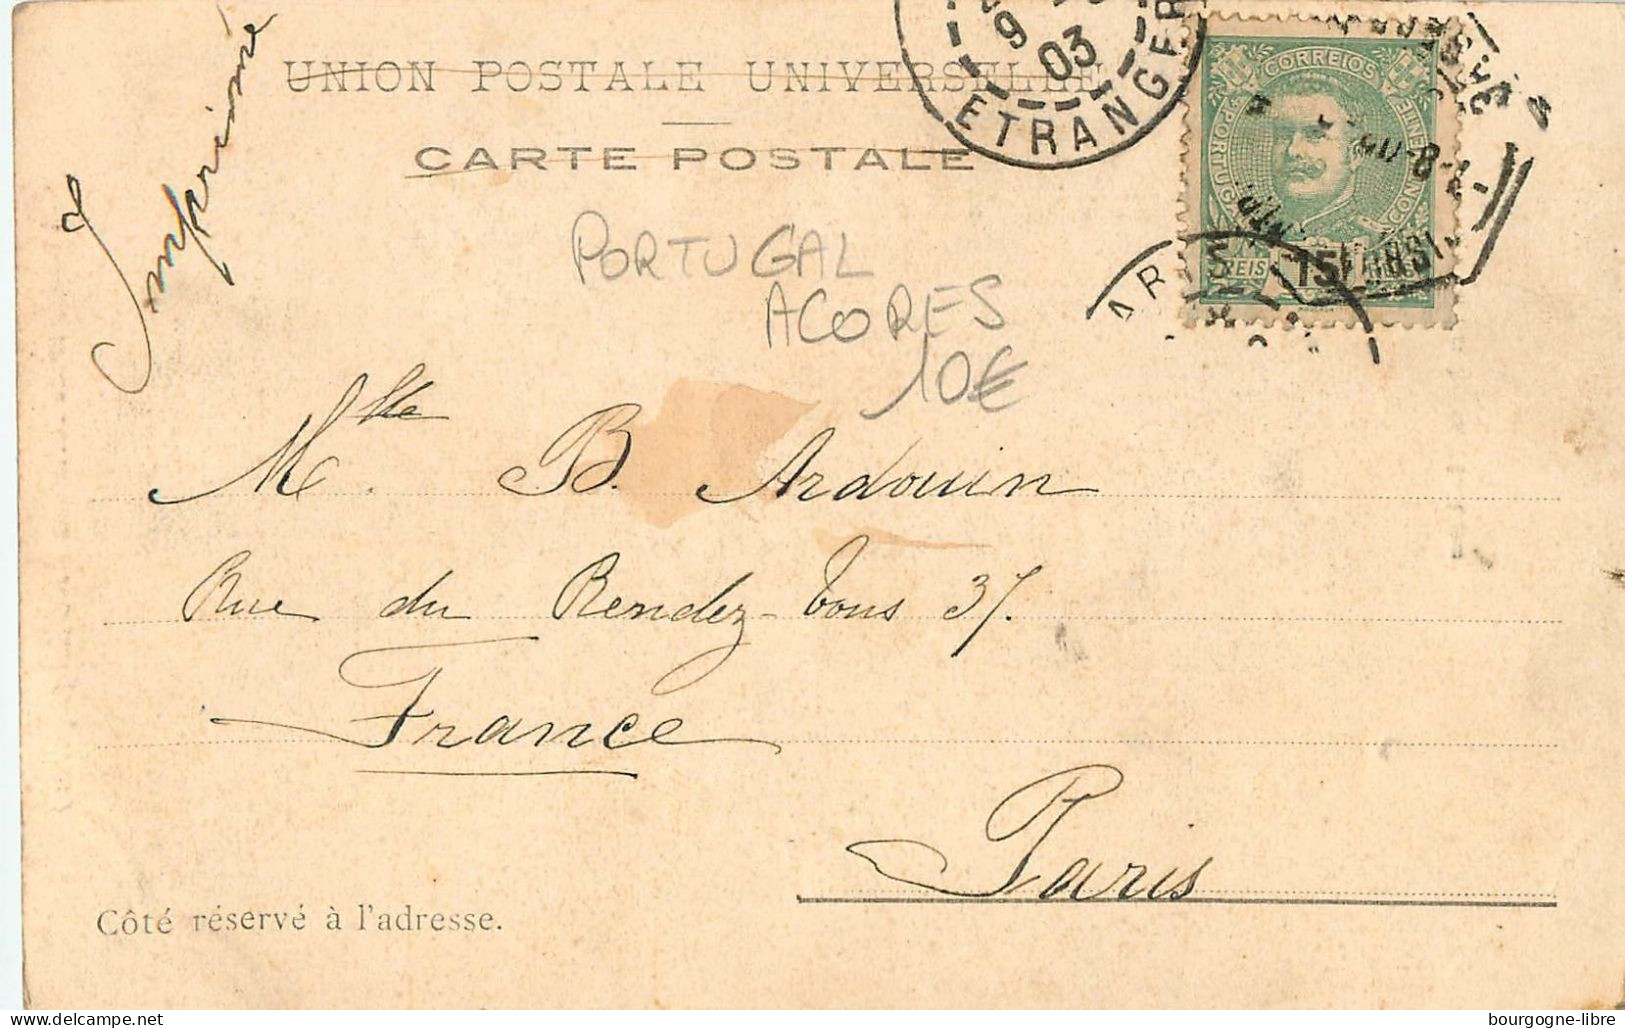 Imprimé
UNION POSTALE UNIVERSELLE
CARTE POSTALE
9 03
ETRANGER
CORREIOS
PORTUGAL
CONTINENTE
REIS 15
PORTUGAL
ACORES
10€
Mlle B. Ardouin
Rue du Rendez-Vous 37.
France
Paris
Côté réservé à l'adresse.
bourgogne-libre